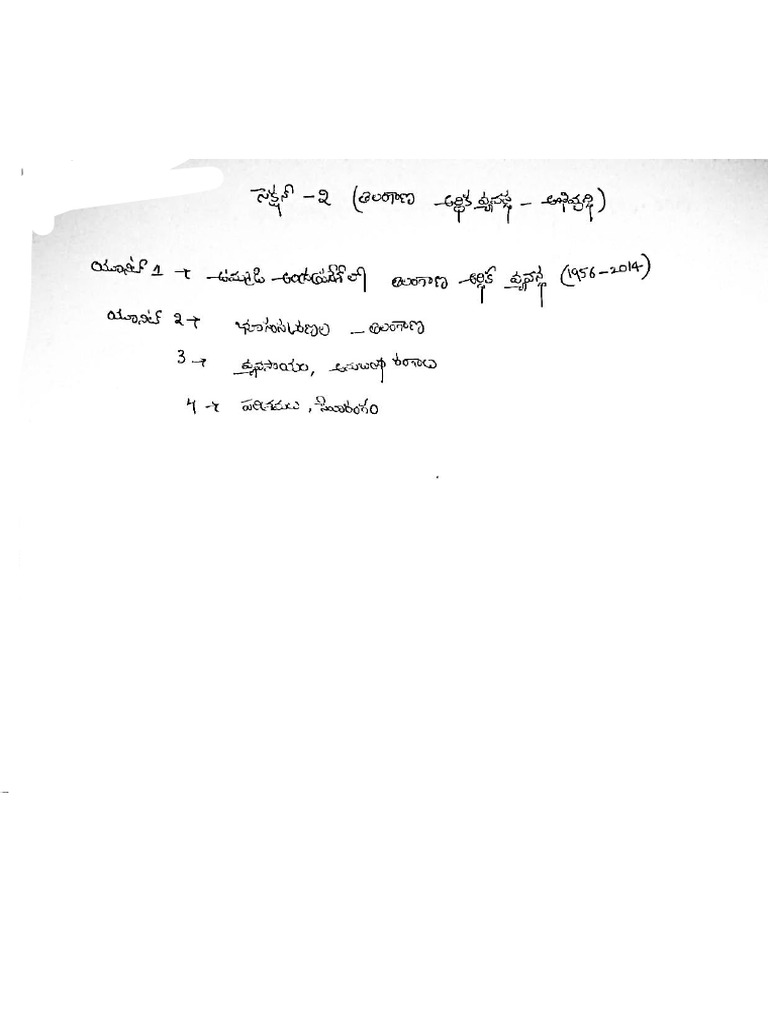 సెక్షన్ - 2 (తెలంగాణ ఆర్థిక వ్యవస్థ - అభివృద్ధి)
యూనిట్ 1 → ఉమ్మడి ఆంధ్రప్రదేశ్‌లో తెలంగాణ ఆర్థిక వ్యవస్థ (1956-2014)
యూనిట్ 2 → భూసంస్కరణలు - తెలంగాణ
3 → వ్యవసాయం, అనుబంధ రంగాలు
4 → పరిశ్రమలు, సేవారంగం